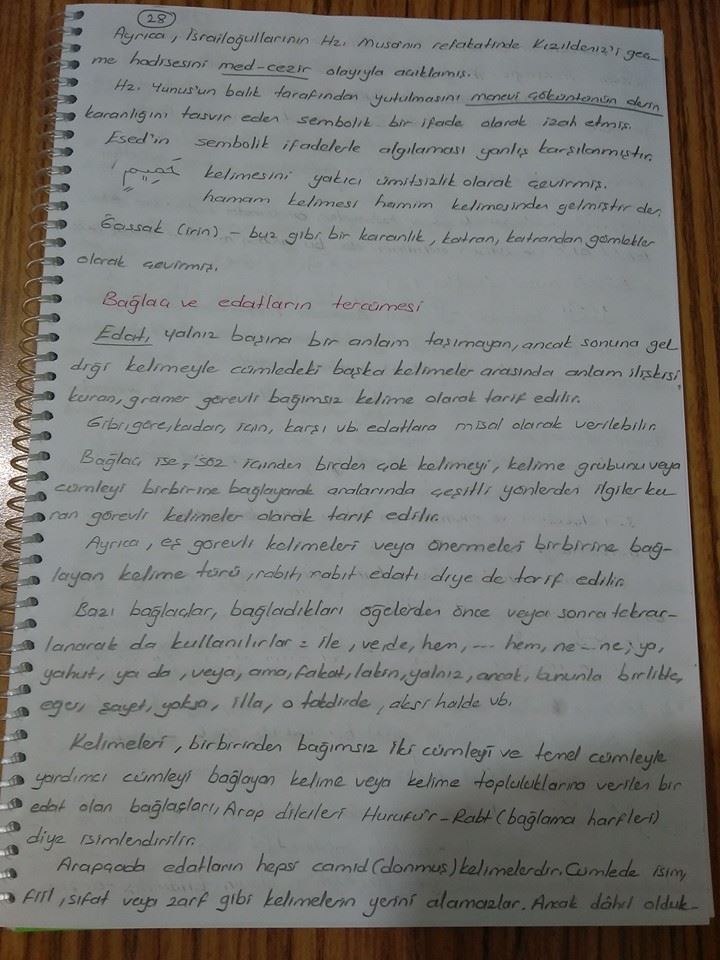 28
Ayrıca, İsrailoğullarının Hz. Musa'nın refakatinde Kızıldeniz'i geç-
me hadisesini med-cezir olayıyla açıklamış.
Hz. Yunus'un balık tarafından yutulmasını manevi çöküntünün derin
karanlığını tasvir eden sembolik bir ifade olarak izah etmiş.
Esed'in sembolik ifadelerle algılaması yanlış karşılanmıştır.
حَمِيمٍ kelimesini yakıcı ümitsizlik olarak çevirmiş.
hamam kelimesi hamim kelimesinden gelmiştir der.
Gassak (irin) - buz gibi bir karanlık, katran, katrandan gömlekler
olarak çevirmiş.
Bağlaç ve edatların tercümesi
Edat, yalnız başına bir anlam taşımayan, ancak sonuna gel
diği kelimeyle cümledeki başka kelimeler arasında anlam ilişkisi
kuran, gramer görevli bağımsız kelime olarak tarif edilir.
Gibi, göre, kadar, için, karşı vb. edatlara misal olarak verilebilir.
Bağlaç ise, söz içinden birden çok kelimeyi, kelime grubunu veya
cümleyi birbirine bağlayarak aralarında çeşitli yönlerden ilgiler ku
ran görevli kelimeler olarak tarif edilir.
Ayrıca, eş görevli kelimeleri veya önermeleri birbirine bağ-
layan kelime türü, rabıt, rabıt edatı diye de tarif edilir.
Bazı bağlaçlar, bağladıkları öğelerden önce veya sonra tekrar-
lanarak da kullanılırlar = ile, ve, de, hem, ... hem, ne -- ne; ya,
yahut, ya da, veya, ama, fakat, lakin, yalnız, ancak, bununla birlikte,
eğer, şayet, yoksa, illa, o takdirde, aksi halde vb.
Kelimeleri, birbirinden bağımsız iki cümleyi ve temel cümleyle
yardımcı cümleyi bağlayan kelime veya kelime topluluklarına verilen bir
edat olan bağlaçları, Arap dilcileri Hurufu'r-Rabt (bağlama harfleri)
diye isimlendirilir.
Arapçada edatların hepsi camid (donmuş) kelimelerdir. Cümlede isim,
fiil, sıfat veya zarf gibi kelimelerin yerini alamazlar. Ancak dâhil olduk-